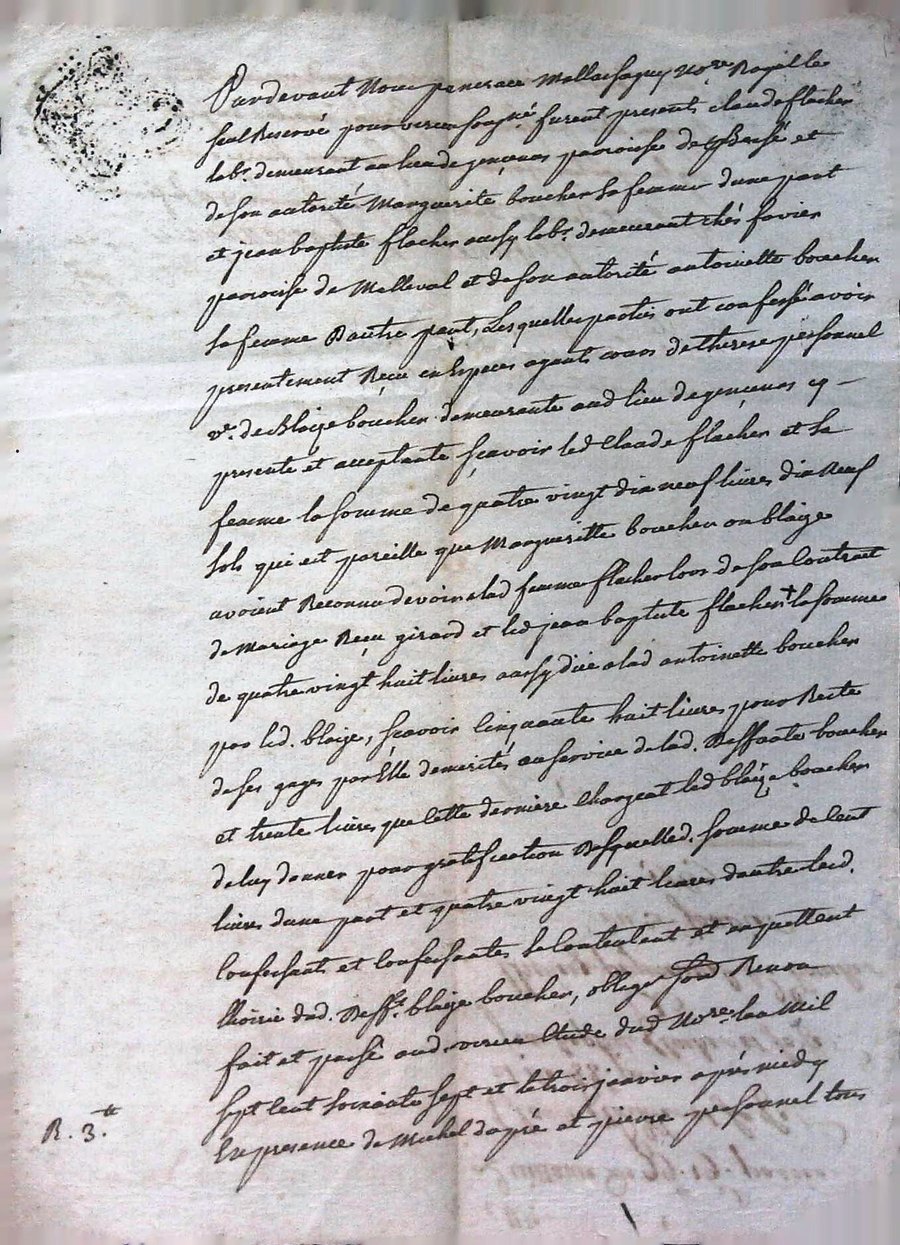 Pardevant Nous pancrace Mallassagny No.re Royal le
seul Reservé pour verin soigné furent presents claude flacher
lab.r demeurant au lieu de gencenas paroisse de Bessé et
de son autorité Marguerite boucher sa femme d'une part
et jean baptiste flacher aussy lab.r demeurant chés favier
paroisse de Malleval et de son autorité antoinette boucher
sa femme D'autre part, Lesquelles parties ont confessé avoir
presentement Receu en Especes agents cours de therese personnel
v.e de Blaize boucher demeurante aud lieu de gencenas cy –
presente et acceptante sçavoir led Claude flacher et sa
femme la somme de quatre vingt dix neuf livres dix Neuf
sols qui est pareille que Margueritte boucher ou blaize
avoient Reconnu devoir a lad femme flacher lors de son Contract
de Mariage Receu girard et led jean baptiste flacher + la somme
de quatre vingt huit livres aussy düe a lad antoinette boucher
par led. blaize, sçavoir Cinquante huit livres pour Reste
de ses gages par Elle demerités au service de lad. Deffunte boucher
et trente livres que Cette derniere Chargeat led blaize boucher
de luy donner pour gratification Desquelles d. somme de Cent
livres d'une part et quatre vingt huit livres d'autre lesd.
Confessants et Confessantes se Contentent et en quittent
lhoirie dud. Deff.t blaize boucher, oblige soûs Renon
fait et passé aud. verin Etude dud No.re. Lan Mil
sept Cent soixante sept et le trois janvier après midy
En presence de Michel dupré et pierre personnel tous
R. 3.tt